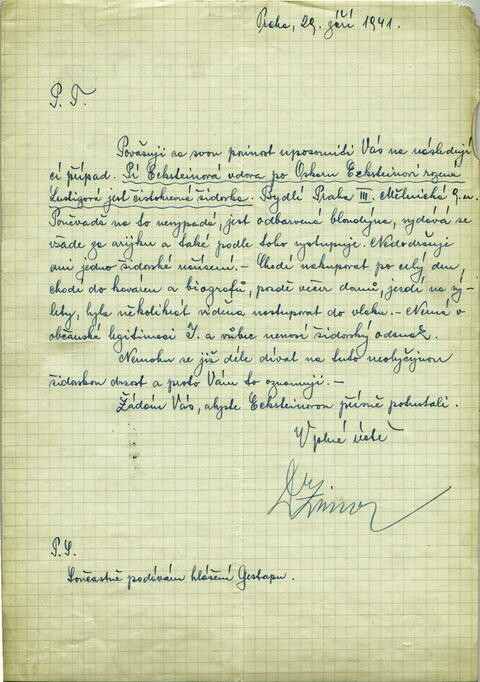 Praha, 29. září 1941.
P. T.
Považuji za svou povinost upozorniti Vás na následují
cí případ. Pí Ecksteinová vdova po Oskaru Ecksteinovi rozená
Lustigová jest čistokrevná židovka. Bydlí Praha III. Mělnická 9.
Poněvadž na to nevypadá, jest odbarvená blondýna, vydává se
všade za arijku a také podle toho vystupuje. Nedodržuje
ani jedno židovské nařízení. – Chodí nakupovat po celý den,
chodí do kaváren a biografů, pozdě večer domů, jezdí na vý-
lety, byla několikrát viděna nastupovat do vlaku. – Nemá v
občanské legitimaci J. a vůbec nenosí židovský odznak.
Nemohu se již déle dívat na tuto neobyčejnou
židovskou drzost a proto Vám to oznamuji. –
Žádám Vás, abyste Ecksteinovou přísně potrestali.
V plné úctě
P. S.
Současně podávám hlášení Gestapu.